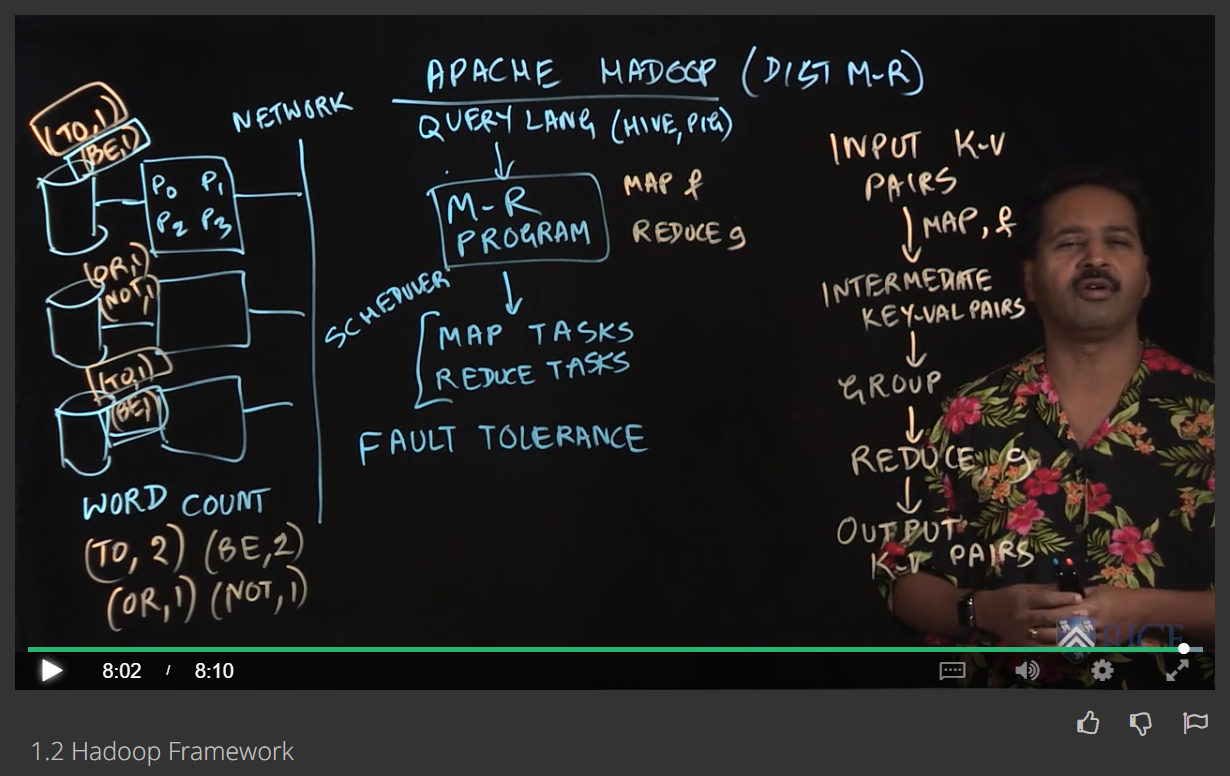 APACHE HADOOP (DIST M-R)
NETWORK
QUERY LANG (HIVE, PIG)
(TO,1)
(BE,1)
P0 P1
P2 P3
(OR,1)
(NOT,1)
(TO,1)
(BE,1
WORD COUNT
(TO, 2) (BE,2)
(OR,1) (NOT,1)
M-R
PROGRAM
MAP f
REDUCE g
SCHEDULER
MAP TASKS
REDUCE TASKS
FAULT TOLERANCE
INPUT K-V
PAIRS
MAP, f
INTERMEDIATE
KEY-VAL PAIRS
GROUP
REDUCE, g
OUTPUT
K-V PAIRS
RICE
8:02 / 8:10
1.2 Hadoop Framework